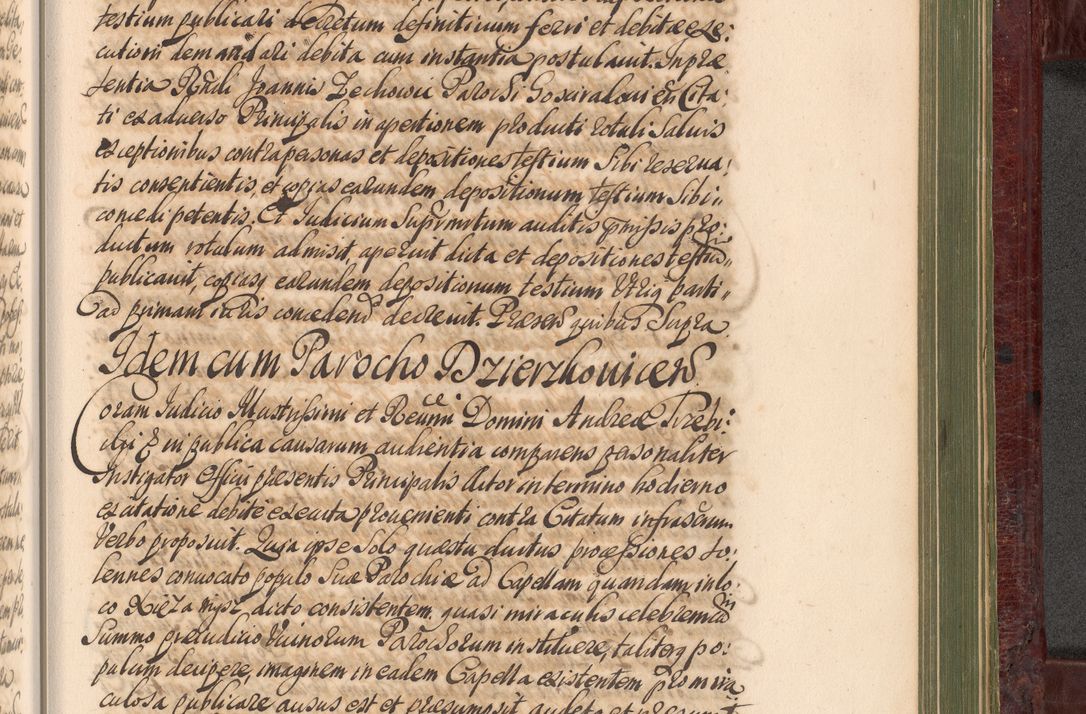 testium publicari decretum definitivum ferri et debitæ exe:
cutioni demandari debita cum instantia postulavit. In præ
sentia Rndi Joannis Zechowic Parochi Gosciradovien Cita:
ti ex adverso Principalis in apertionem producti rotuli Salvis
exceptionibus contra personas et depositiones testium Sibi reserva:
tis consentientis, et copias earundem depositionum testium Sibi
concedi petentis. Et Judicium Suprmntum auditis pmissis pro:
ductum rotulum admisit, aperuit dicta et depositiones testiu
publicavit, copiasq earundem depositionum testium Utriq parti
ad primam iuris concedend decrevit. Præsen quibus Supra
Idem cum Parocho Dzierzkovicen
Coram Judicio Illustrissimi et Reverndi Domini Andreæ Trebi:
cki & in publica causarum audientia comparens personaliter
Instigator Officii præsentis Principalis Actor in termino hodierno
ex citatione debite executa provenienti contra Citatum infrascrum
Verbo proposuit. Quia ipse Solo quæstu ductus processiones So:
lennes convocato populo Suæ Parochiæ ad Capellam quandam in lo:
co Xięza wysz, dicto consistentem, quasi miraculis celebrem in
Summo præiudicio Vicinorum Parochorum instituere, taliterq po:
pulum decipere, imaginem in eadem Capella existentem pro mira
culosa publicare ausus est et præsumpsit, audeta et præsumit